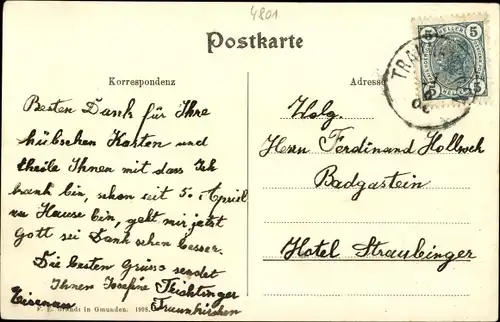 4801
Postkarte
Korrespondenz
Besten Dank für Ihre
hübschen Karten und
theile Ihnen mit dass Ich
krank bin, schon seit 5. April
zu Hause bin, geht mir jetzt
Gott sei Dank schon besser.
Die besten Grüße sendet
Ihnen Josefine
Traunkirchen
F. E. Brandt in Gmunden. 1905.
Adresse
5 HELLER 5
TRAU
Wolg.
Herrn Ferdinand
Badgastein
Hotel Straubinger